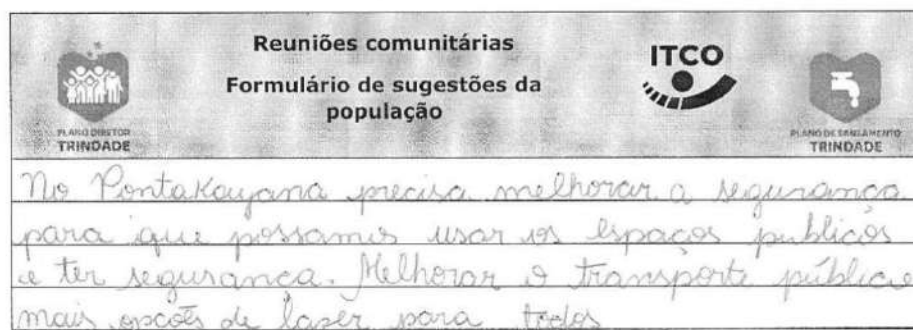 Reuniões comunitárias
Formulário de sugestões da
população
PLANO DIRETOR
TRINDADE
ITCO
PLANO DE SANEAMENTO
TRINDADE
No Pontakayana precisa melhorar a segurança
para que possamos usar os espaços publicos
e ter seguranca. Melhorar o transporte público
mais opcoẽs de laser para todos